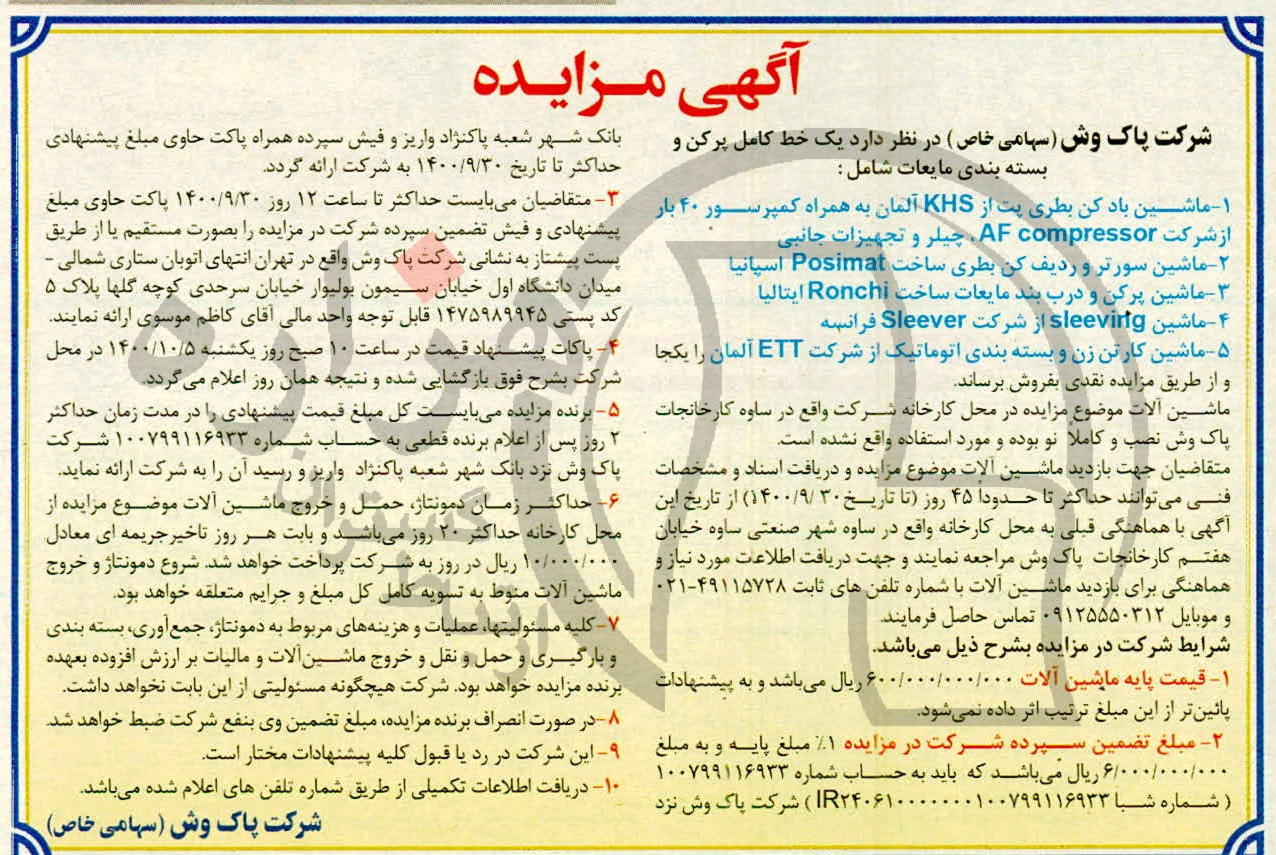 آگهی مـزایـده
شرکت پاک وش (سهامی خاص) در نظر دارد یک خط کامل پرکن و
بسته بندی مایعات شامل :
۱-ماشـــین باد کن بطری پت از KHS آلمان به همراه کمپرســـور ۴۰ بار
ازشرکت AF compressor، چیلر و تجهیزات جانبی
۲-ماشین سورتر و ردیف کن بطری ساخت Posimat اسپانیا
۳-ماشین پرکن و درب بند مایعات ساخت Ronchi ایتالیا
۴-ماشین sleeving از شرکت Sleever فرانسه
۵-ماشین کارتن زن و بسته بندی اتوماتیک از شرکت ETT آلمان را یکجا
و از طریق مزایده نقدی بفروش برساند.
ماشـــین آلات موضوع مزایده در محل کارخانه شـــرکت واقع در ساوه کارخانجات
پاک وش نصب و کاملاً نو بوده و مورد استفاده واقع نشده است.
متقاضیان جهت بازدید ماشـــین آلات موضوع مزایده و دریافت اسناد و مشخصات
فنـــی می‌توانند حداکثر تا حـــدوداً ۴۵ روز (تا تاریـــخ ۱۴۰۰/۹/۳۰) از تاریخ این
آگهی با هماهنگی قبلی به محل کارخانه واقع در ساوه شهر صنعتی ساوه خیابان
هفتـــم کارخانجات پاک وش مراجعه نمایند و جهت دریافت اطلاعات مورد نیاز و
هماهنگی برای بازدید ماشـــین آلات با شماره تلفن های ثابت ۴۹۱۱۵۷۲۸-۰۲۱
و موبایل ۰۹۱۲۵۵۵۰۳۱۲ تماس حاصل فرمایند.
شرایط شرکت در مزایده بشرح ذیل می‌باشد.
۱- قیمت پایه ماشین آلات ۶۰۰/۰۰۰/۰۰۰/۰۰۰ ریال می‌باشد و به پیشنهادات
پائین‌تر از این مبلغ ترتیب اثر داده نمی‌شود.
۲- مبلغ تضمین ســـپرده شـــرکت در مزایده ۱٪ مبلغ پایـــه و به مبلغ
۶/۰۰۰/۰۰۰/۰۰۰ ریال می‌باشـــد که باید به حســـاب شماره ۱۰۰۷۹۹۱۱۶۹۳۳
( شـــماره شـــبا IR۲۴۰۶۱۰۰۰۰۰۰۰۱۰۰۷۹۹۱۱۶۹۳۳ ) شرکت پاک وش نزد
بانک شـــهر شعبه پاکنژاد واریز و فیش سپرده همراه پاکت حاوی مبلغ پیشنهادی
حداکثر تا تاریخ ۱۴۰۰/۹/۳۰ به شرکت ارائه گردد.
۳- متقاضیان می‌بایست حداکثر تا ساعت ۱۲ روز ۱۴۰۰/۹/۳۰ پاکت حاوی مبلغ
پیشنهادی و فیش تضمین سپرده شرکت در مزایده را بصورت مستقیم یا از طریق
پست پیشتاز به نشانی شرکت پاک وش واقع در تهران انتهای اتوبان ستاری شمالی -
میدان دانشگاه اول خیابان ســـیمون بولیوار خیابان سرحدی کوچه گلها پلاک ۵
کد پستی ۱۴۷۵۹۸۹۹۴۵ قابل توجه واحد مالی آقای کاظم موسوی ارائه نمایند.
۴- پاکات پیشـــنهاد قیمت در ساعت ۱۰ صبح روز یکشنبه ۱۴۰۰/۱۰/۵ در محل
شرکت بشرح فوق بازگشایی شده و نتیجه همان روز اعلام می‌گردد.
۵- برنده مزایده می‌بایســـت کل مبلغ قیمت پیشنهادی را در مدت زمان حداکثر
۲ روز پس از اعلام برنده قطعی به حســـاب شـــماره ۱۰۰۷۹۹۱۱۶۹۳۳ شـــرکت
پاک وش نزد بانک شهر شعبه پاکنژاد واریز و رسید آن را به شرکت ارائه نماید.
۶- حداکثـــر زمـــان دمونتاژ، حمـــل و خروج ماشـــین آلات موضـــوع مزایده از
محل کارخانه حداکثر ۲۰ روز می‌باشـــد و بابت هـــر روز تاخیرجریمه ای معادل
۱۰/۰۰۰/۰۰۰ ریال در روز به شـــرکت پرداخت خواهد شد. شروع دمونتاژ و خروج
ماشین آلات منوط به تسویه کامل کل مبلغ و جرایم متعلقه خواهد بود.
۷-کلیه مسئولیتها، عملیات و هزینه‌های مربوط به دمونتاژ، جمع‌آوری، بسته بندی
و بارگیـــری و حمل و نقل و خروج ماشـــین‌آلات و مالیات بر ارزش افزوده بعهده
برنده مزایده خواهد بود. شرکت هیچگونه مسئولیتی از این بابت نخواهد داشت.
۸-در صورت انصراف برنده مزایده، مبلغ تضمین وی بنفع شرکت ضبط خواهد شد.
۹- این شرکت در رد یا قبول کلیه پیشنهادات مختار است.
۱۰- دریافت اطلاعات تکمیلی از طریق شماره تلفن های اعلام شده می‌باشد.
شرکت پاک وش (سهامی خاص)